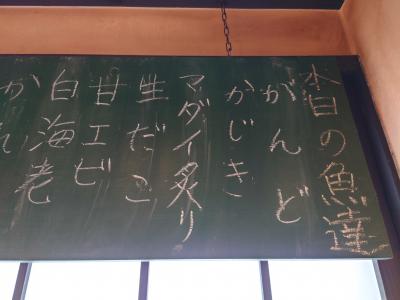 本日の魚達
がんど
かじき
マダイ炙り
生だこ
甘エビ
白海老